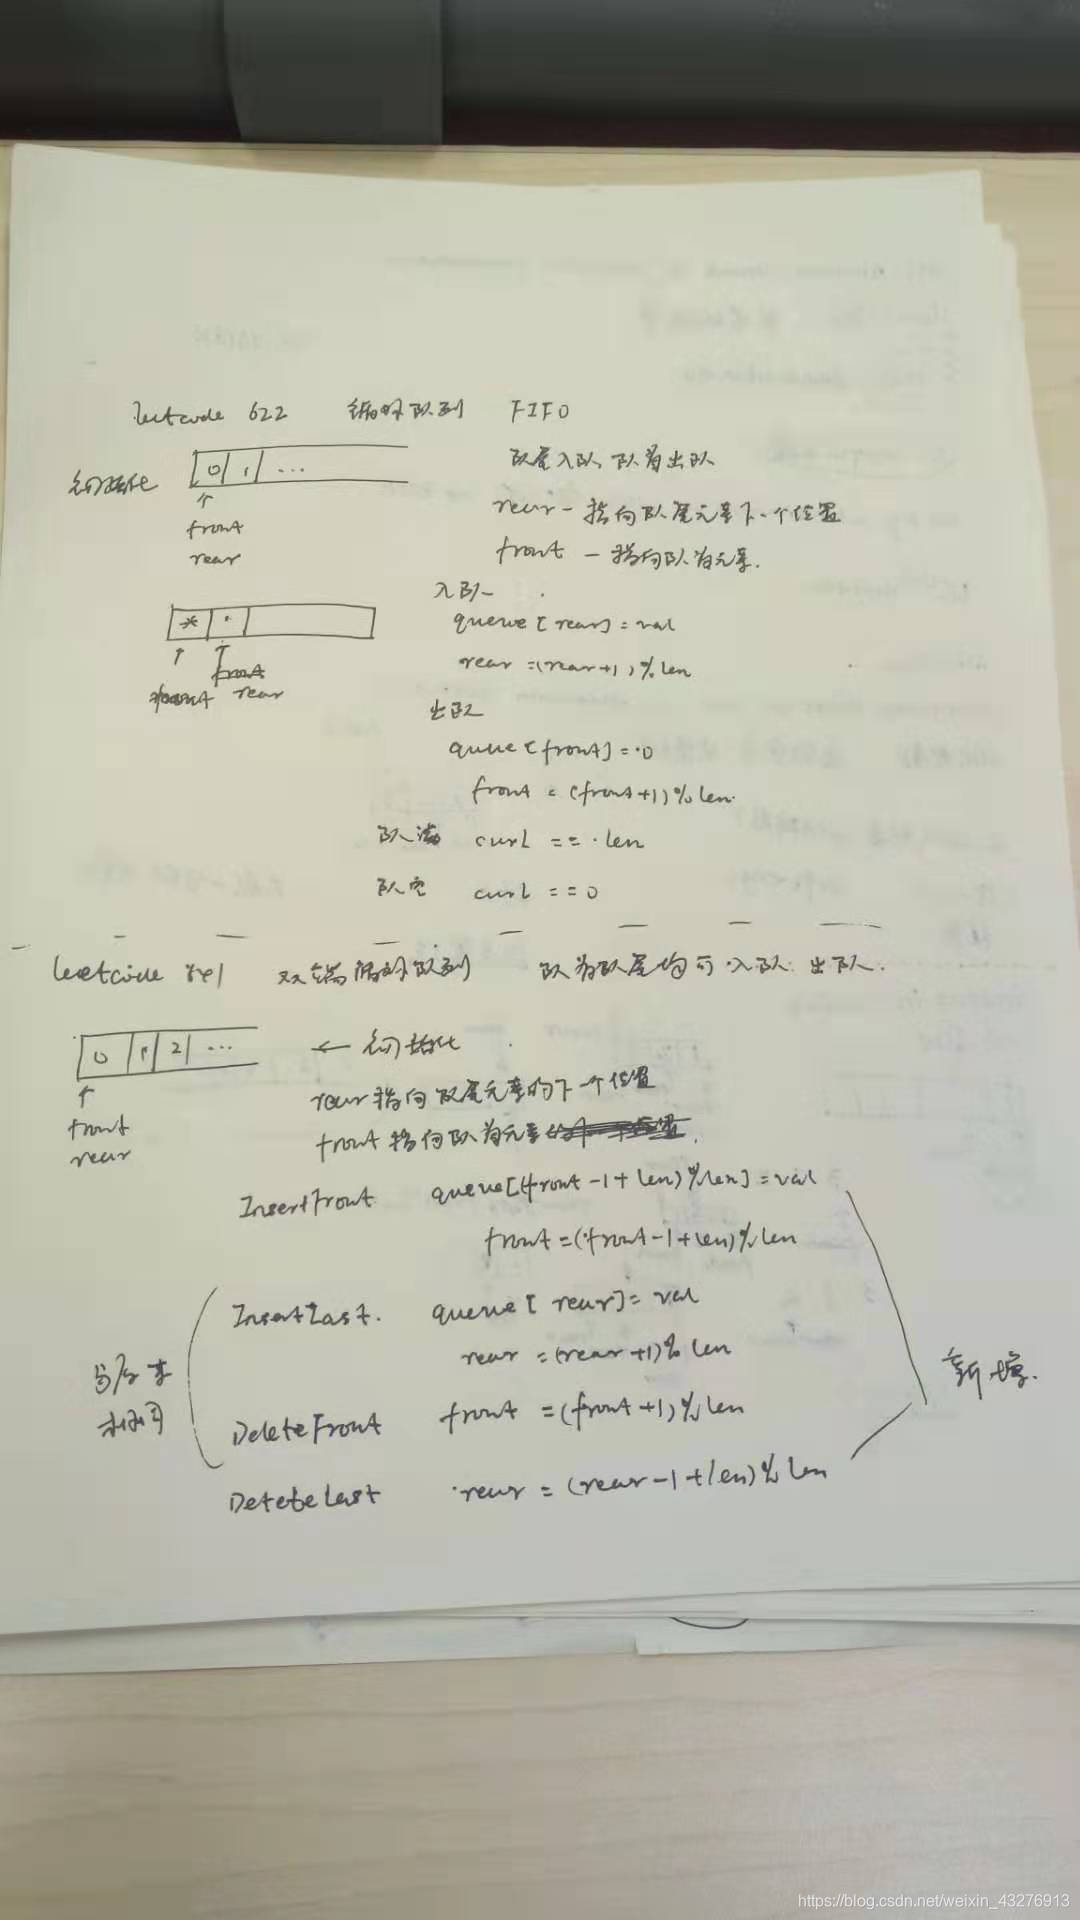 leetcode 622 循环队列 FIFO
初始化 0 1 ...
队尾入队 队首出队
front
rear
rear - 指向队尾元素下一个位置
front - 指向队首元素.
入队
* ·
queue[rear] = val
front
rear
rear = (rear+1)%len
出队
queue[front] = 0
front = (front+1)%len
队满 curL == len
队空 curL == 0
leetcode 641 双端循环队列 队首队尾均可入队 出队.
0 1 2 ... ← 初始化
front
rear
rear指向队尾元素的下一个位置
front 指向队首元素
InsertFront queue[(front-1+len)%len] = val
front = (front-1+len)%len
InsertLast. queue[rear] = val
rear = (rear+1)%len
相同
新增.
DeleteFront front = (front+1)%len
DeteteLast rear = (rear-1+len)%len
https://blog.csdn.net/weixin_43276913